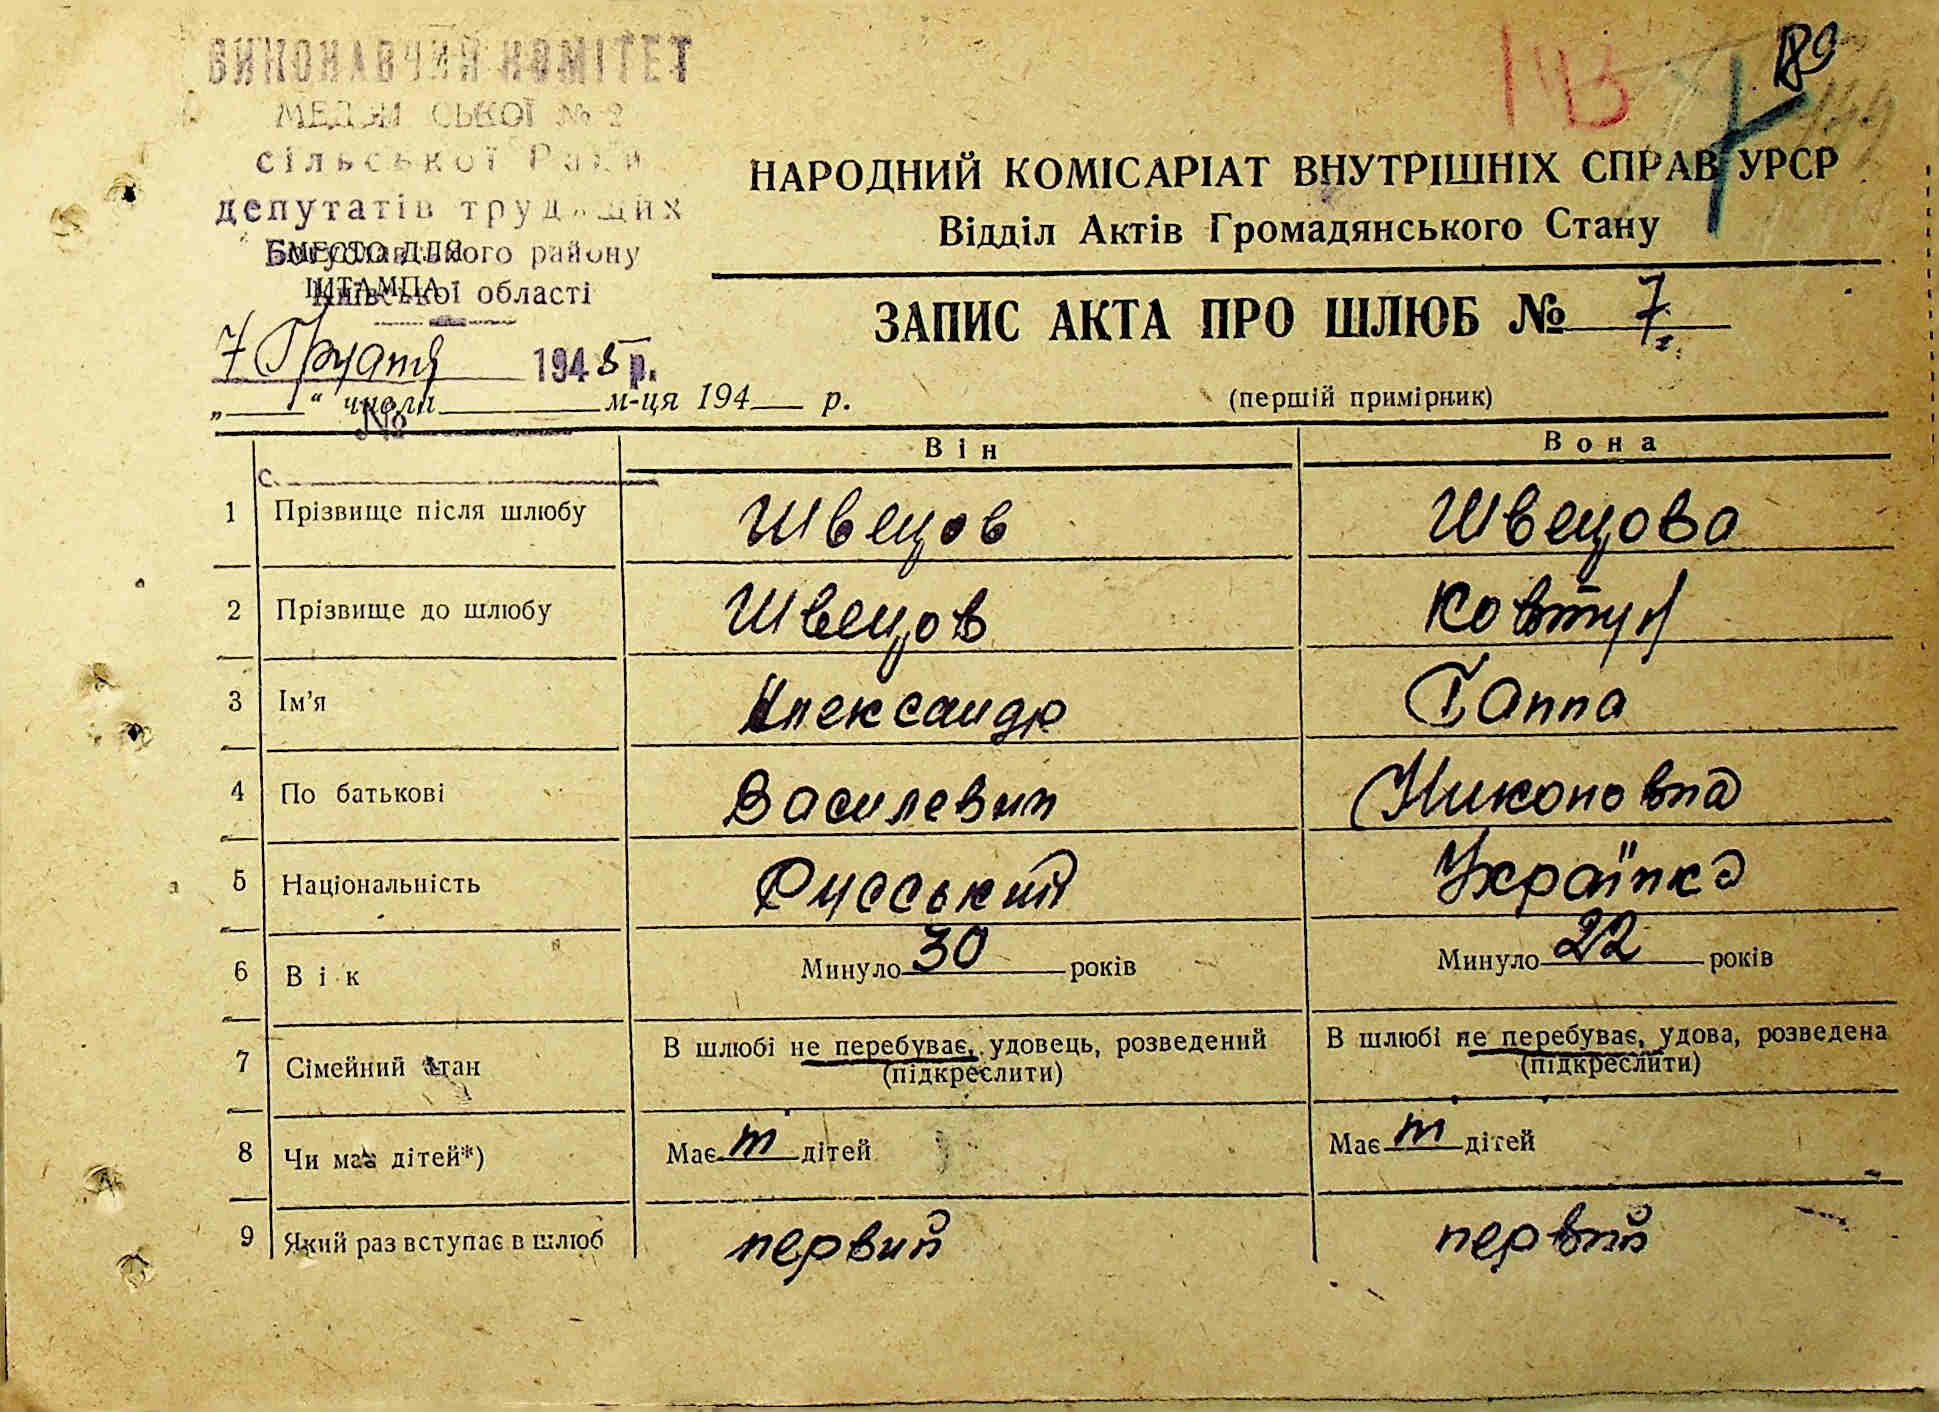 ВИКОНАВЧИЙ КОМІТЕТ
СЬКОЇ № 2
сільської Ради
депутатів трудящих
Богуславського району
МЕСТО ДЛЯ
ШТАМПА
Київської області
7 Грудня 1945 р.
„ “ числа м-ця 194 р.
№
с.
НВ
89
НАРОДНИЙ КОМІСАРІАТ ВНУТРІШНІХ СПРАВ УРСР
Відділ Актів Громадянського Стану
ЗАПИС АКТА ПРО ШЛЮБ № 7
(першій примірник)
Він Вона
1 Прізвище після шлюбу Швецов Швецова
2 Прізвище до шлюбу Швецов Ковтун
3 Ім'я Александр Ганна
4 По батькові Василевич Никоновна
5 Національність Русський Українка
6 Вік Минуло 30 років Минуло 22 років
7 Сімейний стан В шлюбі не перебуває, удовець, розведений В шлюбі не перебуває, удова, розведена
(підкреслити) (підкреслити)
8 Чи має дітей*) Має т дітей Має т дітей
9 Який раз вступає в шлюб первий первий